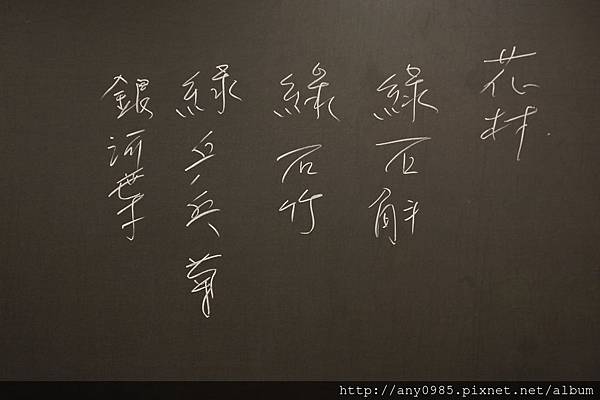 花材.
綠石斛
綠石竹
綠乒乓菊
銀河葉
http://any0985.pixnet.net/album